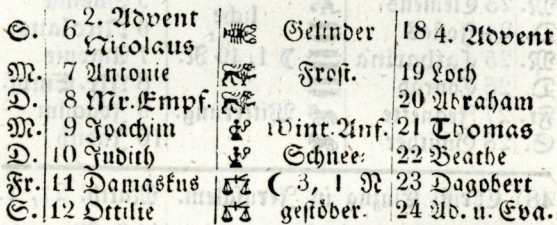 S. 6 2. Advent Nicolaus Gelinder 18 4. Advent
M. 7 Antonie Frost. 19 Loth
D. 8 Mr. Empf. 20 Abraham
M. 9 Joachim Wint. Anf. 21 Thomas
D. 10 Judith Schnee: 22 Beathe
Fr. 11 Damaskus ☾ 3, 1 N 23 Dagobert
S. 12 Ottilie gestöber. 24 Ad. u. Eva.